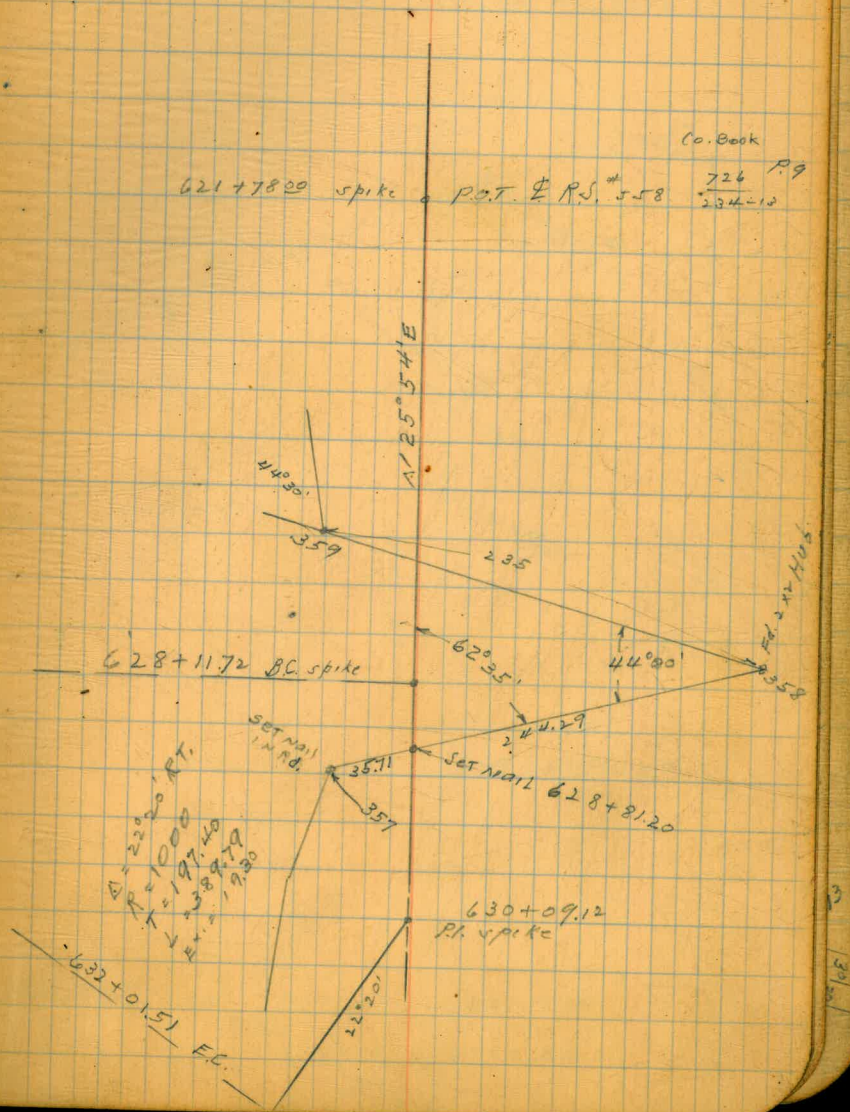 Co. Book
P.9
621+78.00 spike P.O.T. ₵ R.S. #558
726
234-13
N 25° 54' E
44° 30'
359
235
Fd. 2 x 2 Hub
358
62° 35'
44° 00'
628+11.72 B.C. spike
244.29
SET Nail
IN Rd.
35.71
SET Nail 628+81.20
357
Δ = 22° 20' RT.
R = 1000
T = 197.40
L = 389.79
Ex. = 19.30
630+09.12
P.I. spike
22° 20'
632+01.51 E.C.